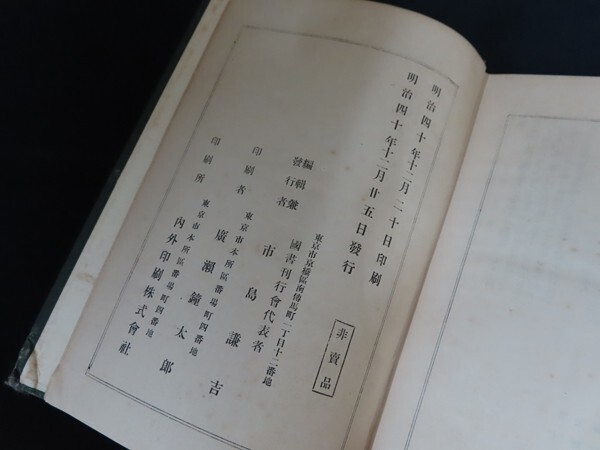 明治四十年十二月二十日印刷
明治四十年十二月廿五日發行
非賣品
東京市京橋區南傳馬町二丁目十二番地
編輯兼
發行者
國書刊行會代表者
市島謙吉
東京市本所區番場町四番地
印刷者
廣瀬鐘太郎
東京市本所區番場町四番地
印刷所
內外印刷株式會社